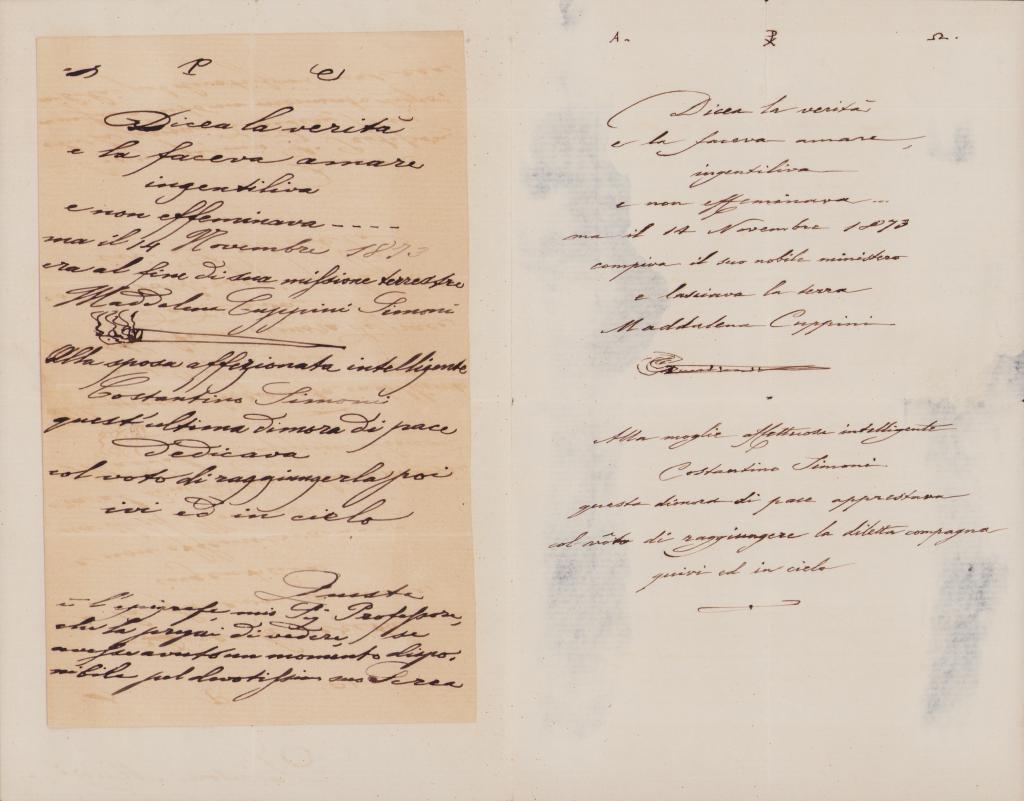 Dicea la verità
e la faceva amare
ingentiliva
e non effeminava ----
ma il 14 Novembre 1873
era al fine di sua missione terrestre
Maddalena Cuppini Simoni
Alla sposa affezionata intelligente
Costantino Simoni
quest'ultima dimora di pace
dedicava
col voto di raggiungerla poi
ivi ed in cielo
Questa
è l'epigrafe, mio Sig Professore,
che la pregai di vedere, se
avesse avuto un momento dispo-
nibile pel devotissimo suo
A. ☧ Ω.
Dicea la verità
e la faceva amare,
ingentiliva
e non effeminava ...
ma il 14 Novembre 1873
compiva il suo nobile ministero
e lasciava la terra
Maddalena Cuppini
Alla moglie affettuosa intelligente
Costantino Simoni
questa dimora di pace apprestava
col vóto di raggiungere la diletta compagna
quivi ed in cielo